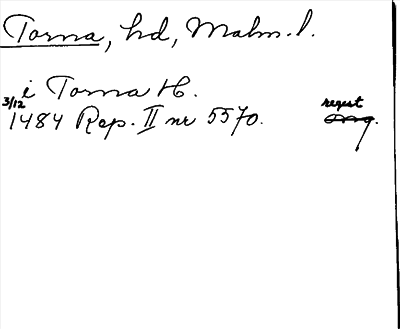 Torna, hd, Malm. l.
i Torna H.
3/12 regest
1484 Rep. II nr 5570. orig.